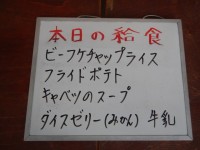 本日の給食
ビーフケチャップライス
フライドポテト
キャベツのスープ
ダイスゼリー(みかん) 牛乳